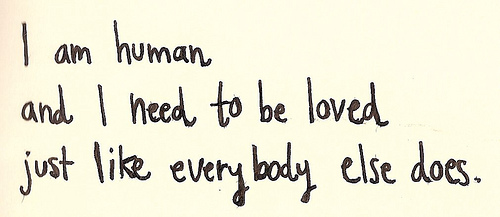 I am human
and I need to be loved
just like everybody else does.